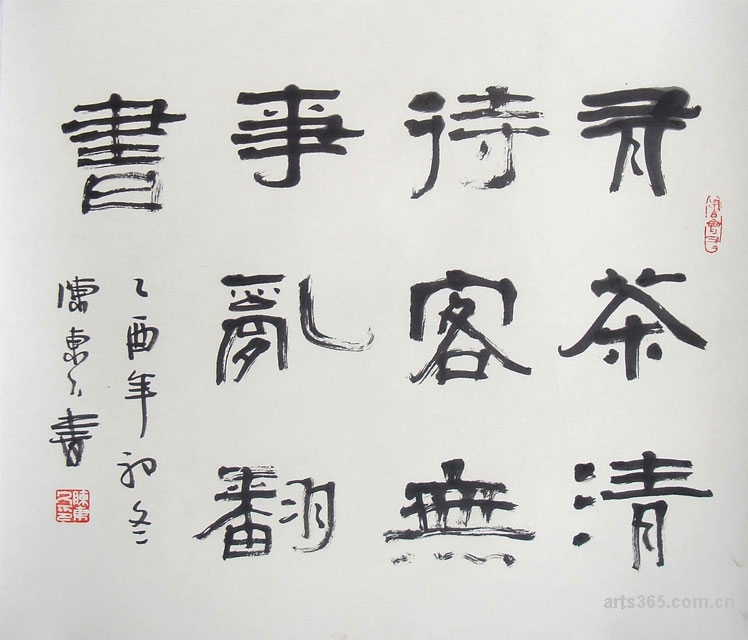 有茶清
待客無
事亂翻
書
乙酉年初冬
陳東 書
陳東
arts365.com.cn